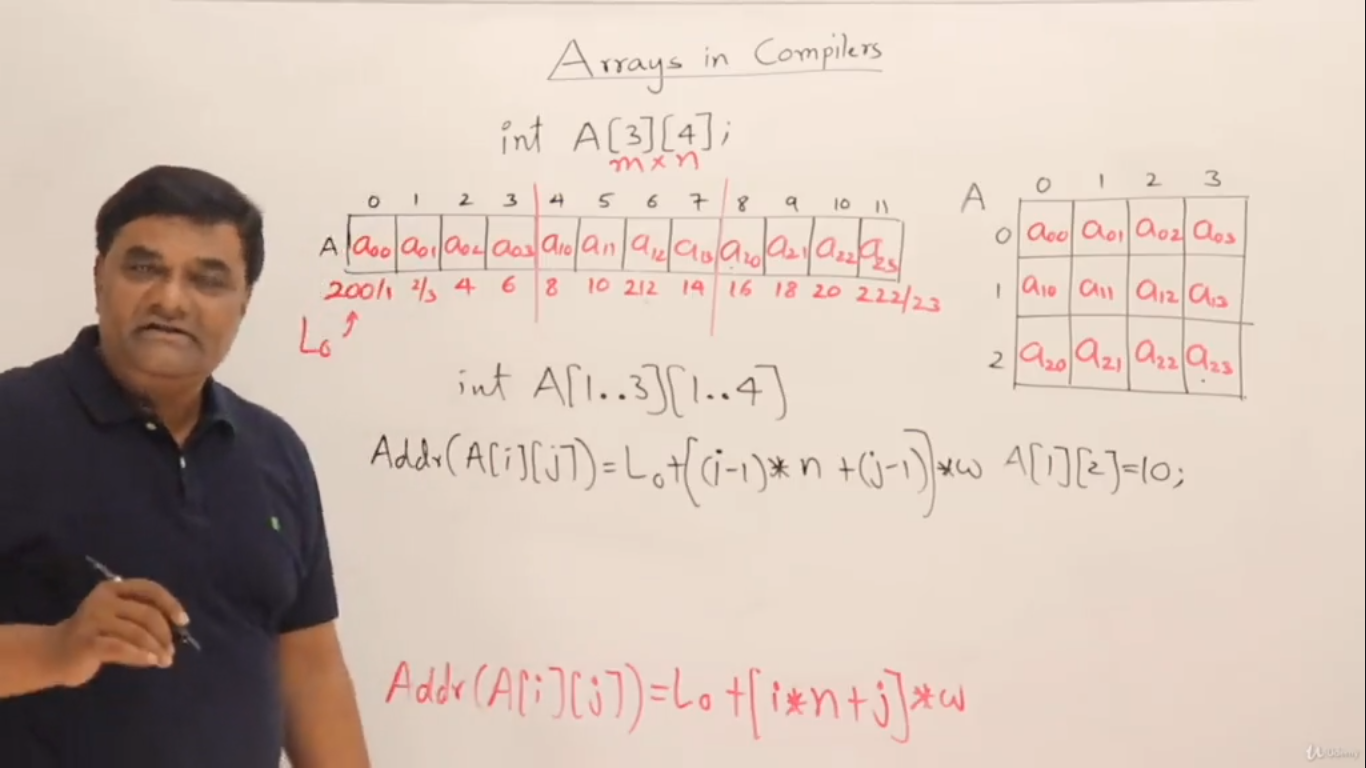 Arrays in Compilers
int A[3][4];
m×n
0 1 2 3 4 5 6 7 8 9 10 11
A a00 a01 a02 a03 a10 a11 a12 a13 a20 a21 a22 a23
200/1 2/3 4 6 8 10 212 14 16 18 20 222/23
L0
A 0 1 2 3
0 a00 a01 a02 a03
1 a10 a11 a12 a13
2 a20 a21 a22 a23
int A[1..3][1..4]
Addr(A[i][j])=L0+[(i-1)*n+(j-1)]*w A[1][2]=10;
Addr(A[i][j])=L0+[i*n+j]*w
Udemy